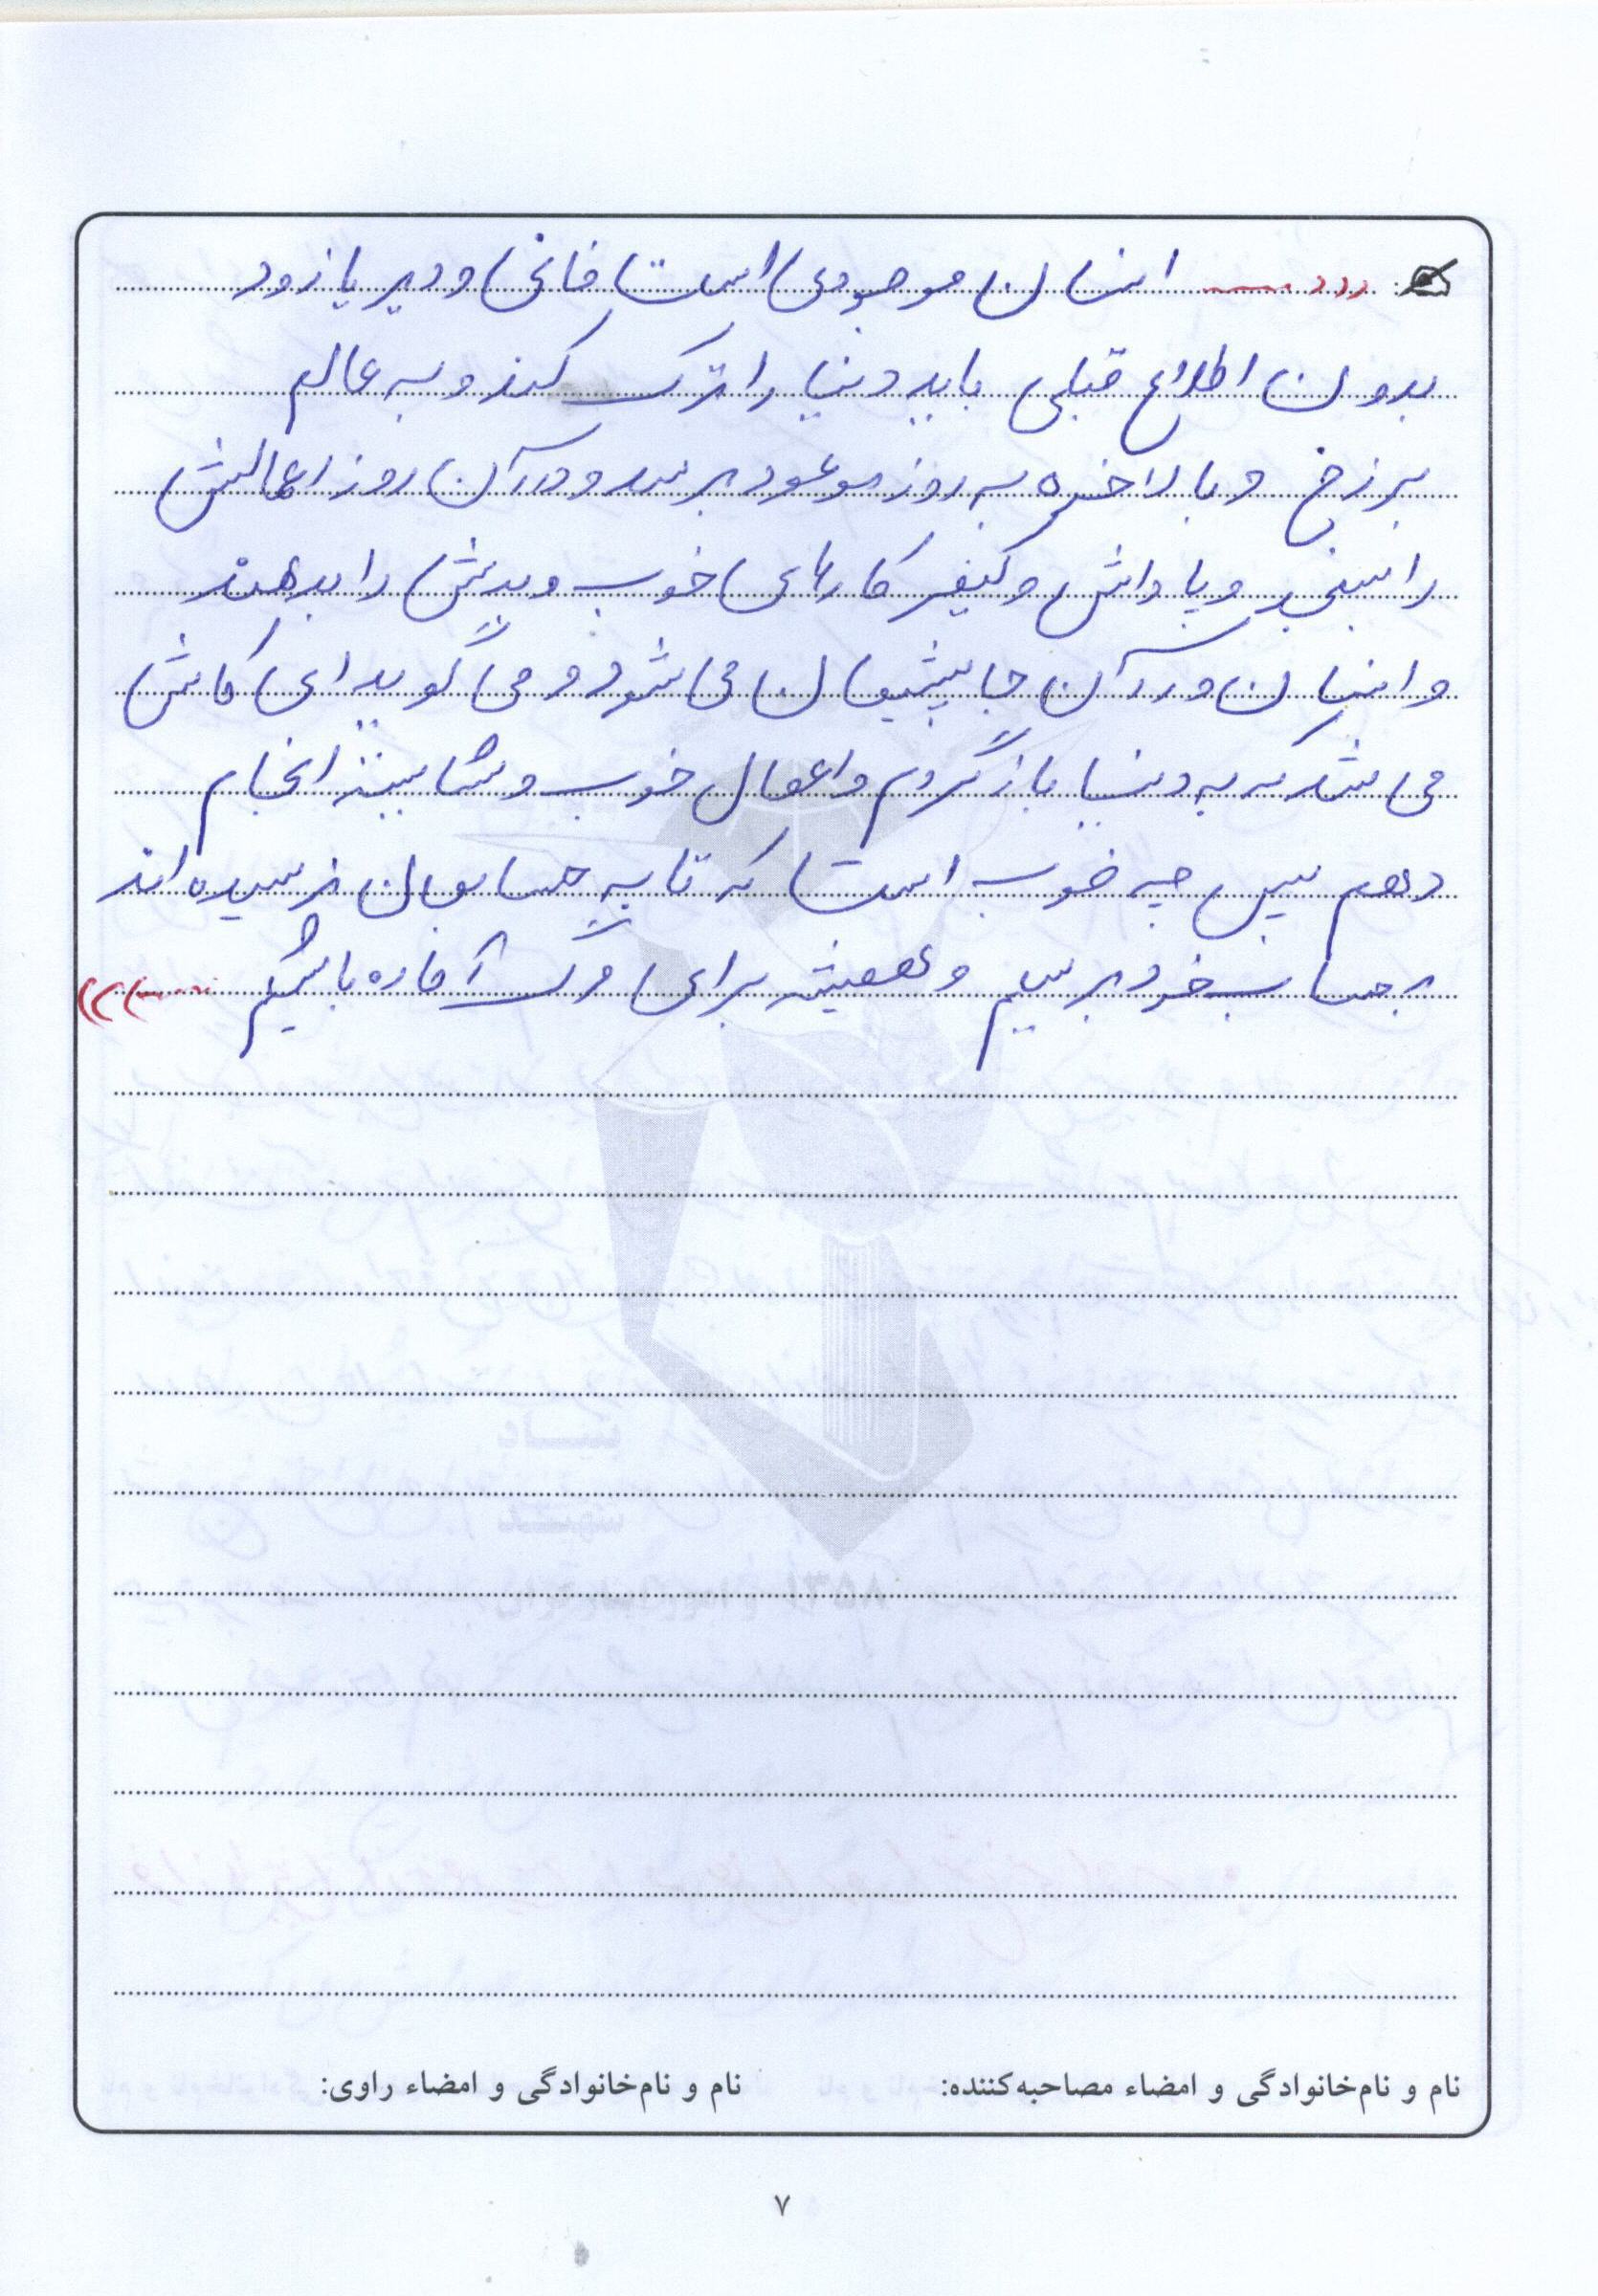 ((( ...... انسان موجودی است فانی و دیر یا زود
بدون اطلاع قبلی باید دنیا را ترک کند و به عالم
برزخ و بالاخره به روز موعود برسد و در آن روز اعمالش
را ببیند و پاداش و کیفر کارهای خوب و بدش را بدهند
و انسان در آن جا پشیمان می شود و می گوید ای کاش
می شد که به دنیا بازگردم و اعمال خوب و شایسته انجام
دهم پس چه خوب است که تا به حسابمان نرسیده اند
به حساب خود برسیم و همیشه برای مرگ آماده باشیم ......)))
نام و نام‌خانوادگی و امضاء مصاحبه‌کننده: نام و نام‌خانوادگی و امضاء راوی:
۷